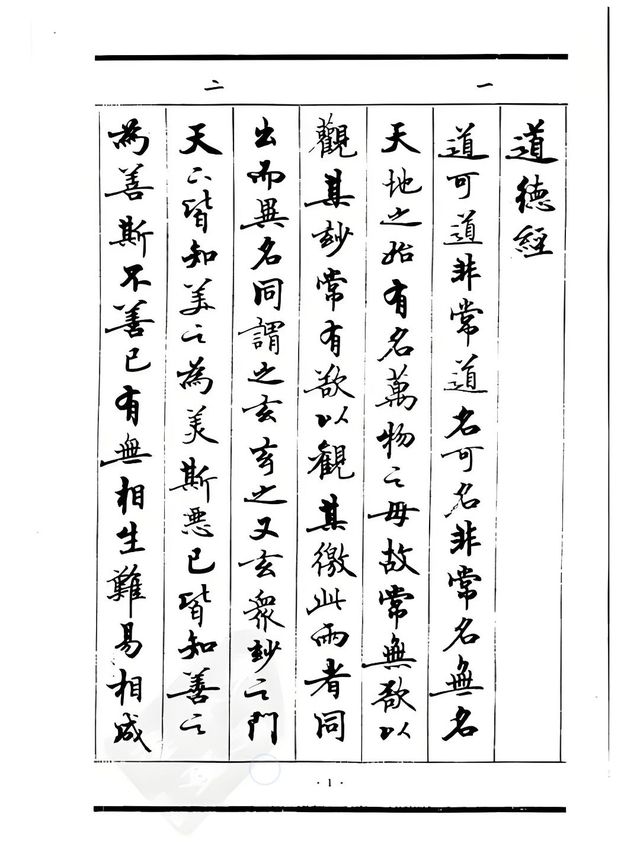 一
二
道德經
道可道非常道名可名非常名無名
天地之始有名萬物之母故常無欲以
觀其妙常有欲以觀其徼此兩者同
出而異名同謂之玄玄之又玄衆妙之門
天下皆知美之為美斯惡已皆知善之
為善斯不善已有無相生難易相成
·1·